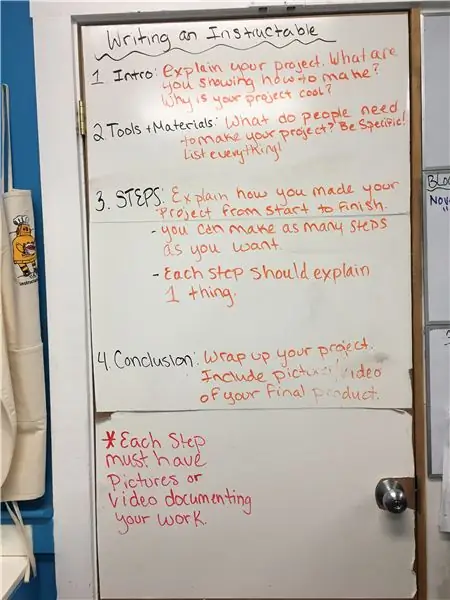 Writing an Instructable
1 Intro: Explain your project. What are
you showing how to make?
Why is your project cool?
2 Tools + Materials: What do people need
to make your project? Be Specific!
List everything!
3. STEPS: Explain how you made your
Project from start to Finish.
- you can make as many steps
as you want.
- Each step should explain
1 thing.
4. Conclusion: Wrap up your project.
Include picture/video
of your Final product.
*Each Step
must have
Pictures or
Video documenting
your work.
Nov